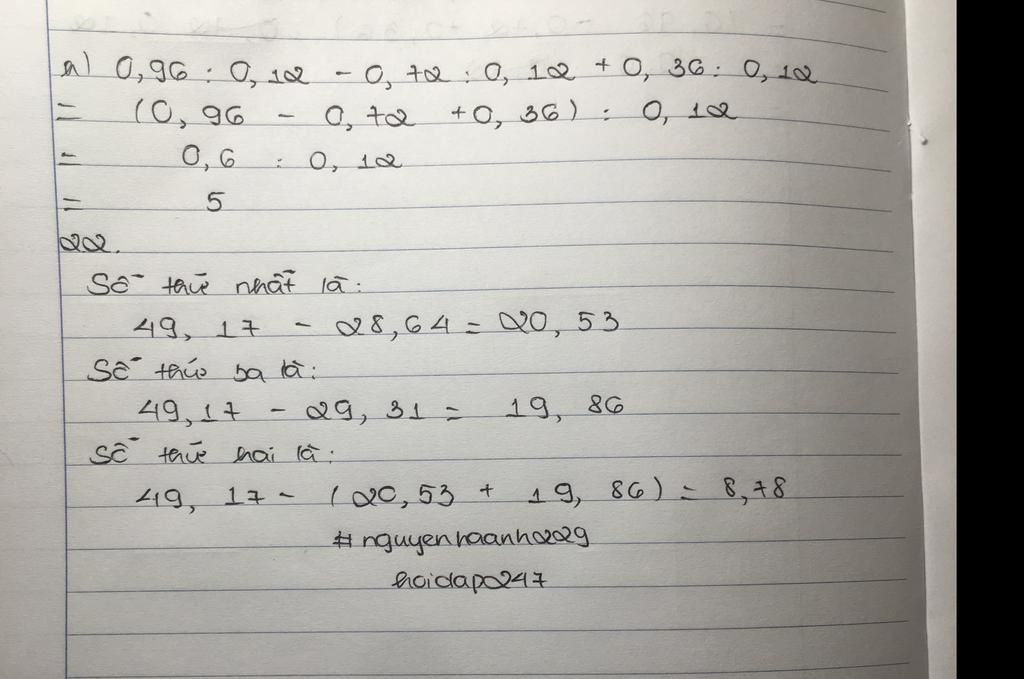 a) 0,96 : 0,12 - 0,72 : 0,12 + 0,36 : 0,12
= (0,96 - 0,72 + 0,36) : 0,12
= 0,6 : 0,12
= 5
22.
Số thứ nhất là:
49,17 - 28,64 = 20,53
Số thứ ba là:
49,17 - 29,31 = 19,86
Số thứ hai là:
49,17 - (20,53 + 19,86) = 8,78
#nguyenhaanh2229
hoidap247